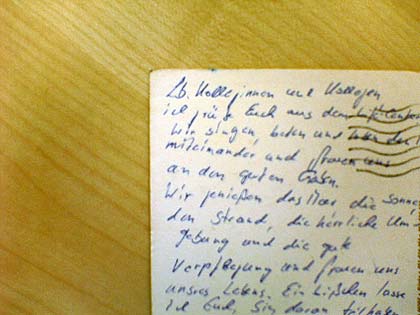 Lb. Kolleginnen und Kollegen
ich grüße Euch aus dem
Wir singen, beten und
miteinander und freuen uns
an den guten Gaben.
Wir genießen das Meer die Sonne
den Strand, die herrliche Um
gebung und die gute
Verpflegung und freuen uns
unsres Lebens. Ein bißchen lasse
ich Euch, Sie, daran teilhaben